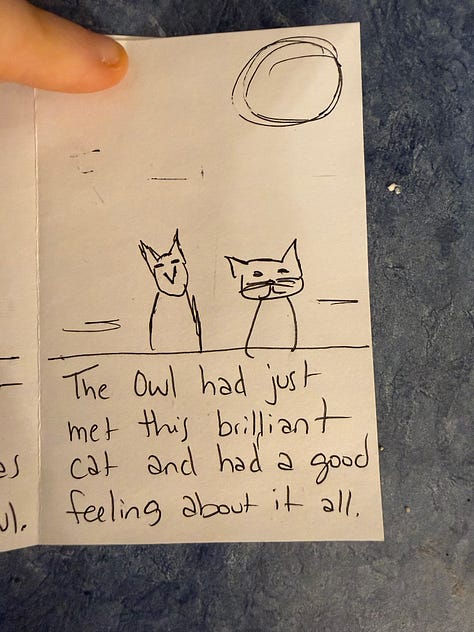 The Owl had just
met this brilliant
cat and had a good
feeling about it all.